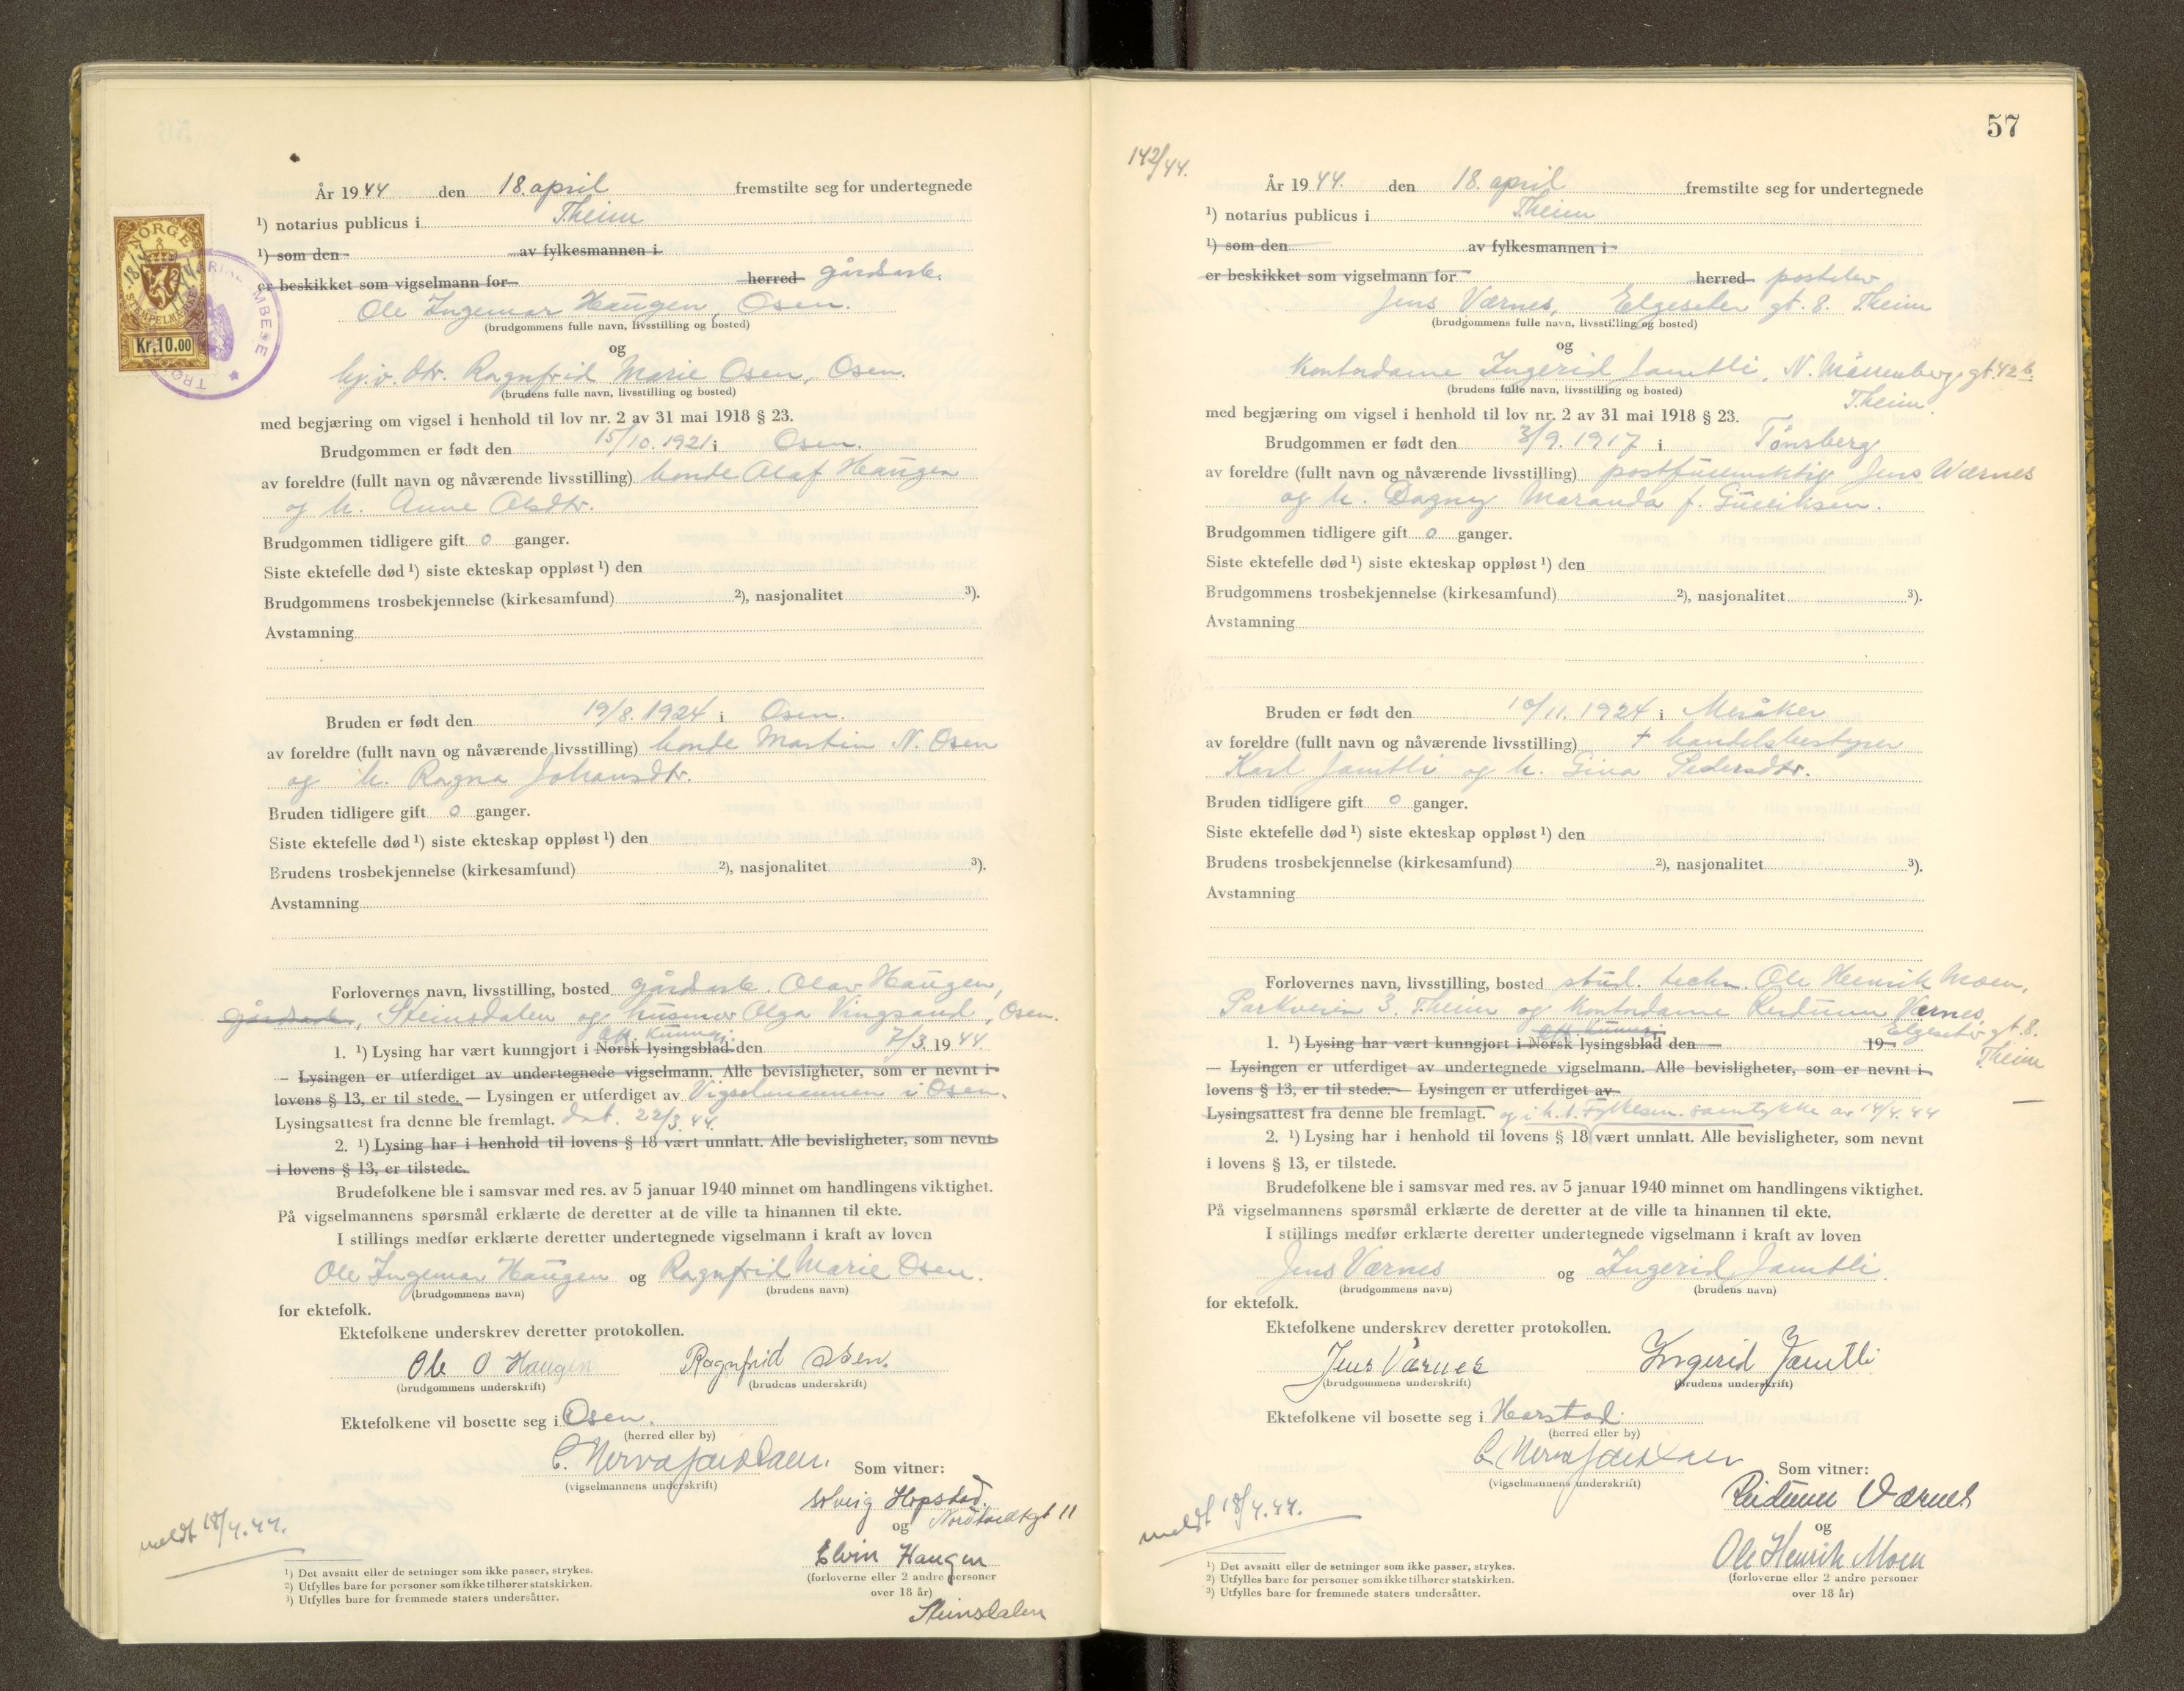 År 1944 den 18. april fremstilte seg for undertegnede
¹) notarius publicus i Theim
¹) som den av fylkesmannen i
er beskikket som vigselmann for herred gårdsarb.
Ole Ingemar Haugen, Osen.
(brudgommens fulle navn, livsstilling og bosted)
og
hj.v. dtr. Ragnfrid Marie Osen, Osen.
(brudens fulle navn, livsstilling og bosted)
med begjæring om vigsel i henhold til lov nr. 2 av 31 mai 1918 § 23.
Brudgommen er født den 15/10. 1921 i Osen.
av foreldre (fullt navn og nåværende livsstilling) bonde Olaf Haugen
og h. Anne Olsdtr.
Brudgommen tidligere gift 0 ganger.
Siste ektefelle død ¹) siste ekteskap oppløst ¹) den
Brudgommens trosbekjennelse (kirkesamfund) ²), nasjonalitet ³).
Avstamning
Bruden er født den 19/8. 1924 i Osen.
av foreldre (fullt navn og nåværende livsstilling) bonde Martin N. Osen
og h. Ragna Johansdtr.
Bruden tidligere gift 0 ganger.
Siste ektefelle død ¹) siste ekteskap oppløst ¹) den
Brudens trosbekjennelse (kirkesamfund) ²), nasjonalitet ³).
Avstamning
Forlovernes navn, livsstilling, bosted gårdsarb. Olav Haugen,
gårdsarb., Steinsdalen og husmor Olga Vingsand, Osen.
Off. Kunngj.
1. ¹) Lysing har vært kunngjort i Norsk lysingsblad den 7/3. 1944.
— Lysingen er utferdiget av undertegnede vigselmann. Alle bevisligheter, som er nevnt i
lovens § 13, er til stede. — Lysingen er utferdiget av Vigselmannen i Osen.
Lysingsattest fra denne ble fremlagt. dat. 22/3. 44.
2. ¹) Lysing har i henhold til lovens § 18 vært unnlatt. Alle bevisligheter, som nevnt
i lovens § 13, er tilstede.
Brudefolkene ble i samsvar med res. av 5 januar 1940 minnet om handlingens viktighet.
På vigselmannens spørsmål erklærte de deretter at de ville ta hinannen til ekte.
I stillings medfør erklærte deretter undertegnede vigselmann i kraft av loven
Ole Ingemar Haugen og Ragnfrid Marie Osen.
(brudgommens navn) (brudens navn)
for ektefolk.
Ektefolkene underskrev deretter protokollen.
Ole O Haugen Ragnfrid Osen.
(brudgommens underskrift) (brudens underskrift)
Ektefolkene vil bosette seg i Osen.
(herred eller by)
C. Nerva
(vigselmannens underskrift)
Som vitner:
Solveig Hopstad.
og
Elvin Haugen
(forloverne eller 2 andre personer
over 18 år)
Steinsdalen
meldt 18/4.44.
¹) Det avsnitt eller de setninger som ikke passer, strykes.
²) Utfylles bare for personer som ikke tilhører statskirken.
³) Utfylles bare for fremmede staters undersåtter.
NORGE
STEMPELMERKE
Kr.10.00
57
142/44.
År 1944. den 18. april fremstilte seg for undertegnede
¹) notarius publicus i Theim
¹) som den av fylkesmannen i
er beskikket som vigselmann for herred postelev
Jens Værnes, Elgeseter gt. 8. Theim
(brudgommens fulle navn, livsstilling og bosted)
og
Kontordame Ingerid Jamtli, N. Møllenbergs gt. 42 b.
(brudens fulle navn, livsstilling og bosted)
Theim.
med begjæring om vigsel i henhold til lov nr. 2 av 31 mai 1918 § 23.
Brudgommen er født den 3/9. 1917 i Tønsberg
av foreldre (fullt navn og nåværende livsstilling) postfullmektig Jens Værnes
og h. Dagny Maranda f. Gulliksen.
Brudgommen tidligere gift 0 ganger.
Siste ektefelle død ¹) siste ekteskap oppløst ¹) den
Brudgommens trosbekjennelse (kirkesamfund) ²), nasjonalitet ³).
Avstamning
Bruden er født den 10/11. 1924 i Meråker
av foreldre (fullt navn og nåværende livsstilling) + handelsbestyrer
Karl Jamtli og h. Gina Pedersdtr.
Bruden tidligere gift 0 ganger.
Siste ektefelle død ¹) siste ekteskap oppløst ¹) den
Brudens trosbekjennelse (kirkesamfund) ²), nasjonalitet ³).
Avstamning
Forlovernes navn, livsstilling, bosted stud. techn. Ole Henrik Moen,
Parkveien 3. Theim og Kontordame Reidunn Værnes
Elgeseter gt. 8.
Theim
Off. Kunngj.
1. ¹) Lysing har vært kunngjort i Norsk lysingsblad den 19
— Lysingen er utferdiget av undertegnede vigselmann. Alle bevisligheter, som er nevnt i
lovens § 13, er til stede. — Lysingen er utferdiget av
Lysingsattest fra denne ble fremlagt. og i h. t. Fylkesm. samtykke av 14/4. 44
2. ¹) Lysing har i henhold til lovens § 18 vært unnlatt. Alle bevisligheter, som nevnt
i lovens § 13, er tilstede.
Brudefolkene ble i samsvar med res. av 5 januar 1940 minnet om handlingens viktighet.
På vigselmannens spørsmål erklærte de deretter at de ville ta hinannen til ekte.
I stillings medfør erklærte deretter undertegnede vigselmann i kraft av loven
Jens Værnes og Ingerid Jamtli.
(brudgommens navn) (brudens navn)
for ektefolk.
Ektefolkene underskrev deretter protokollen.
Jens Værnes Ingerid Jamtli
(brudgommens underskrift) (brudens underskrift)
Ektefolkene vil bosette seg i Harstad.
(herred eller by)
C. Nerva
(vigselmannens underskrift)
Som vitner:
Reidunn Værnes
og
Ole Henrik Moen
(forloverne eller 2 andre personer
over 18 år)
meldt 18/4.44.
¹) Det avsnitt eller de setninger som ikke passer, strykes.
²) Utfylles bare for personer som ikke tilhører statskirken.
³) Utfylles bare for fremmede staters undersåtter.